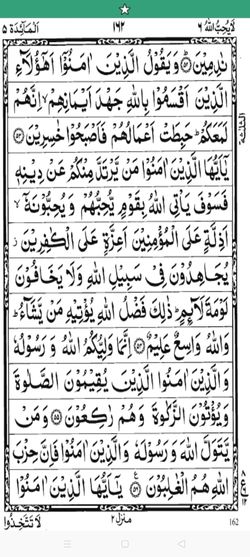 لَا يُحِبُّ اللّٰهُ ٦ ١٦٢ اَلْمَآئِدَة ٥
نٰدِمِیْنَ ﴿٥٢﴾ وَیَقُوْلُ الَّذِیْنَ اٰمَنُوْۤا اَهٰۤؤُلَآءِ
الَّذِیْنَ اَقْسَمُوْا بِاللّٰهِ جَهْدَ اَیْمَانِهِمْ ۙ اِنَّهُمْ
لَمَعَكُمْ ؕ حَبِطَتْ اَعْمَالُهُمْ فَاَصْبَحُوْا خٰسِرِیْنَ ﴿٥٣﴾
یٰۤاَیُّهَا الَّذِیْنَ اٰمَنُوْا مَنْ یَّرْتَدَّ مِنْكُمْ عَنْ دِیْنِهٖ
فَسَوْفَ یَاْتِی اللّٰهُ بِقَوْمٍ یُّحِبُّهُمْ وَیُحِبُّوْنَهٗۤ ۙ
اَذِلَّةٍ عَلَی الْمُؤْمِنِیْنَ اَعِزَّةٍ عَلَی الْكٰفِرِیْنَ ؗ
یُجَاهِدُوْنَ فِیْ سَبِیْلِ اللّٰهِ وَلَا یَخَافُوْنَ
لَوْمَةَ لَآئِمٍ ؕ ذٰلِكَ فَضْلُ اللّٰهِ یُؤْتِیْهِ مَنْ یَّشَآءُ ؕ
وَاللّٰهُ وَاسِعٌ عَلِیْمٌ ﴿٥٤﴾ اِنَّمَا وَلِیُّكُمُ اللّٰهُ وَرَسُوْلُهٗ
وَالَّذِیْنَ اٰمَنُوا الَّذِیْنَ یُقِیْمُوْنَ الصَّلٰوةَ
وَیُؤْتُوْنَ الزَّكٰوةَ وَهُمْ رٰكِعُوْنَ ﴿٥٥﴾ وَمَنْ
یَّتَوَلَّ اللّٰهَ وَرَسُوْلَهٗ وَالَّذِیْنَ اٰمَنُوْا فَاِنَّ حِزْبَ
اللّٰهِ هُمُ الْغٰلِبُوْنَ ﴿٥٦﴾ یٰۤاَیُّهَا الَّذِیْنَ اٰمَنُوْا
لَا تَتَّخِذُوا منزل ٢ 162